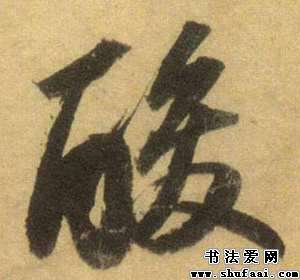 酸
书法爱网
www.shufaai.com